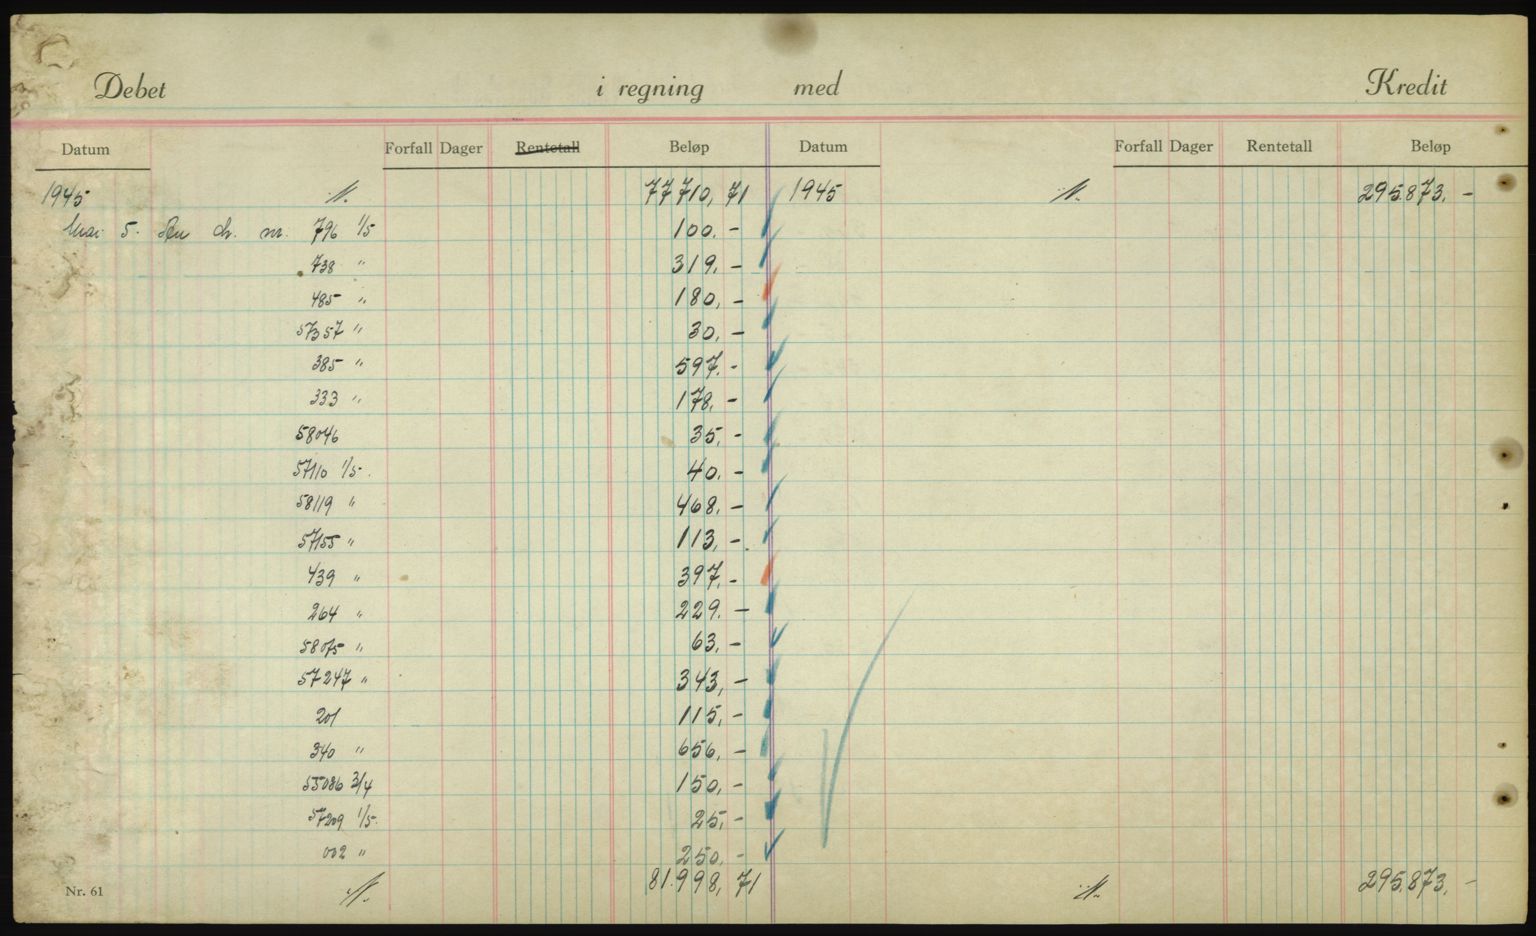 Debet i regning med Kredit
Datum Forfall Dager Rentetall Beløp Datum Forfall Dager Rentetall Beløp
1945 77710,71 1945 295.873.-
Mai 5. nr. 796 1/5 100.-
738 " 319,-
485 " 180,-
57357 " 30,-
385 " 597.-
333 " 178,-
58046 35,-
57110 1/5. 40.-
58119 " 468.-
57155 " 113,-.
439 " 397,-
264 " 229.-
58075 " 63,-
57247 " 343,-
201 115,-
340 " 656,-
55086 3/4 150,-
57209 1/5. 25,-
002 " 250.-
Nr. 61 81.998,71 295.873.-